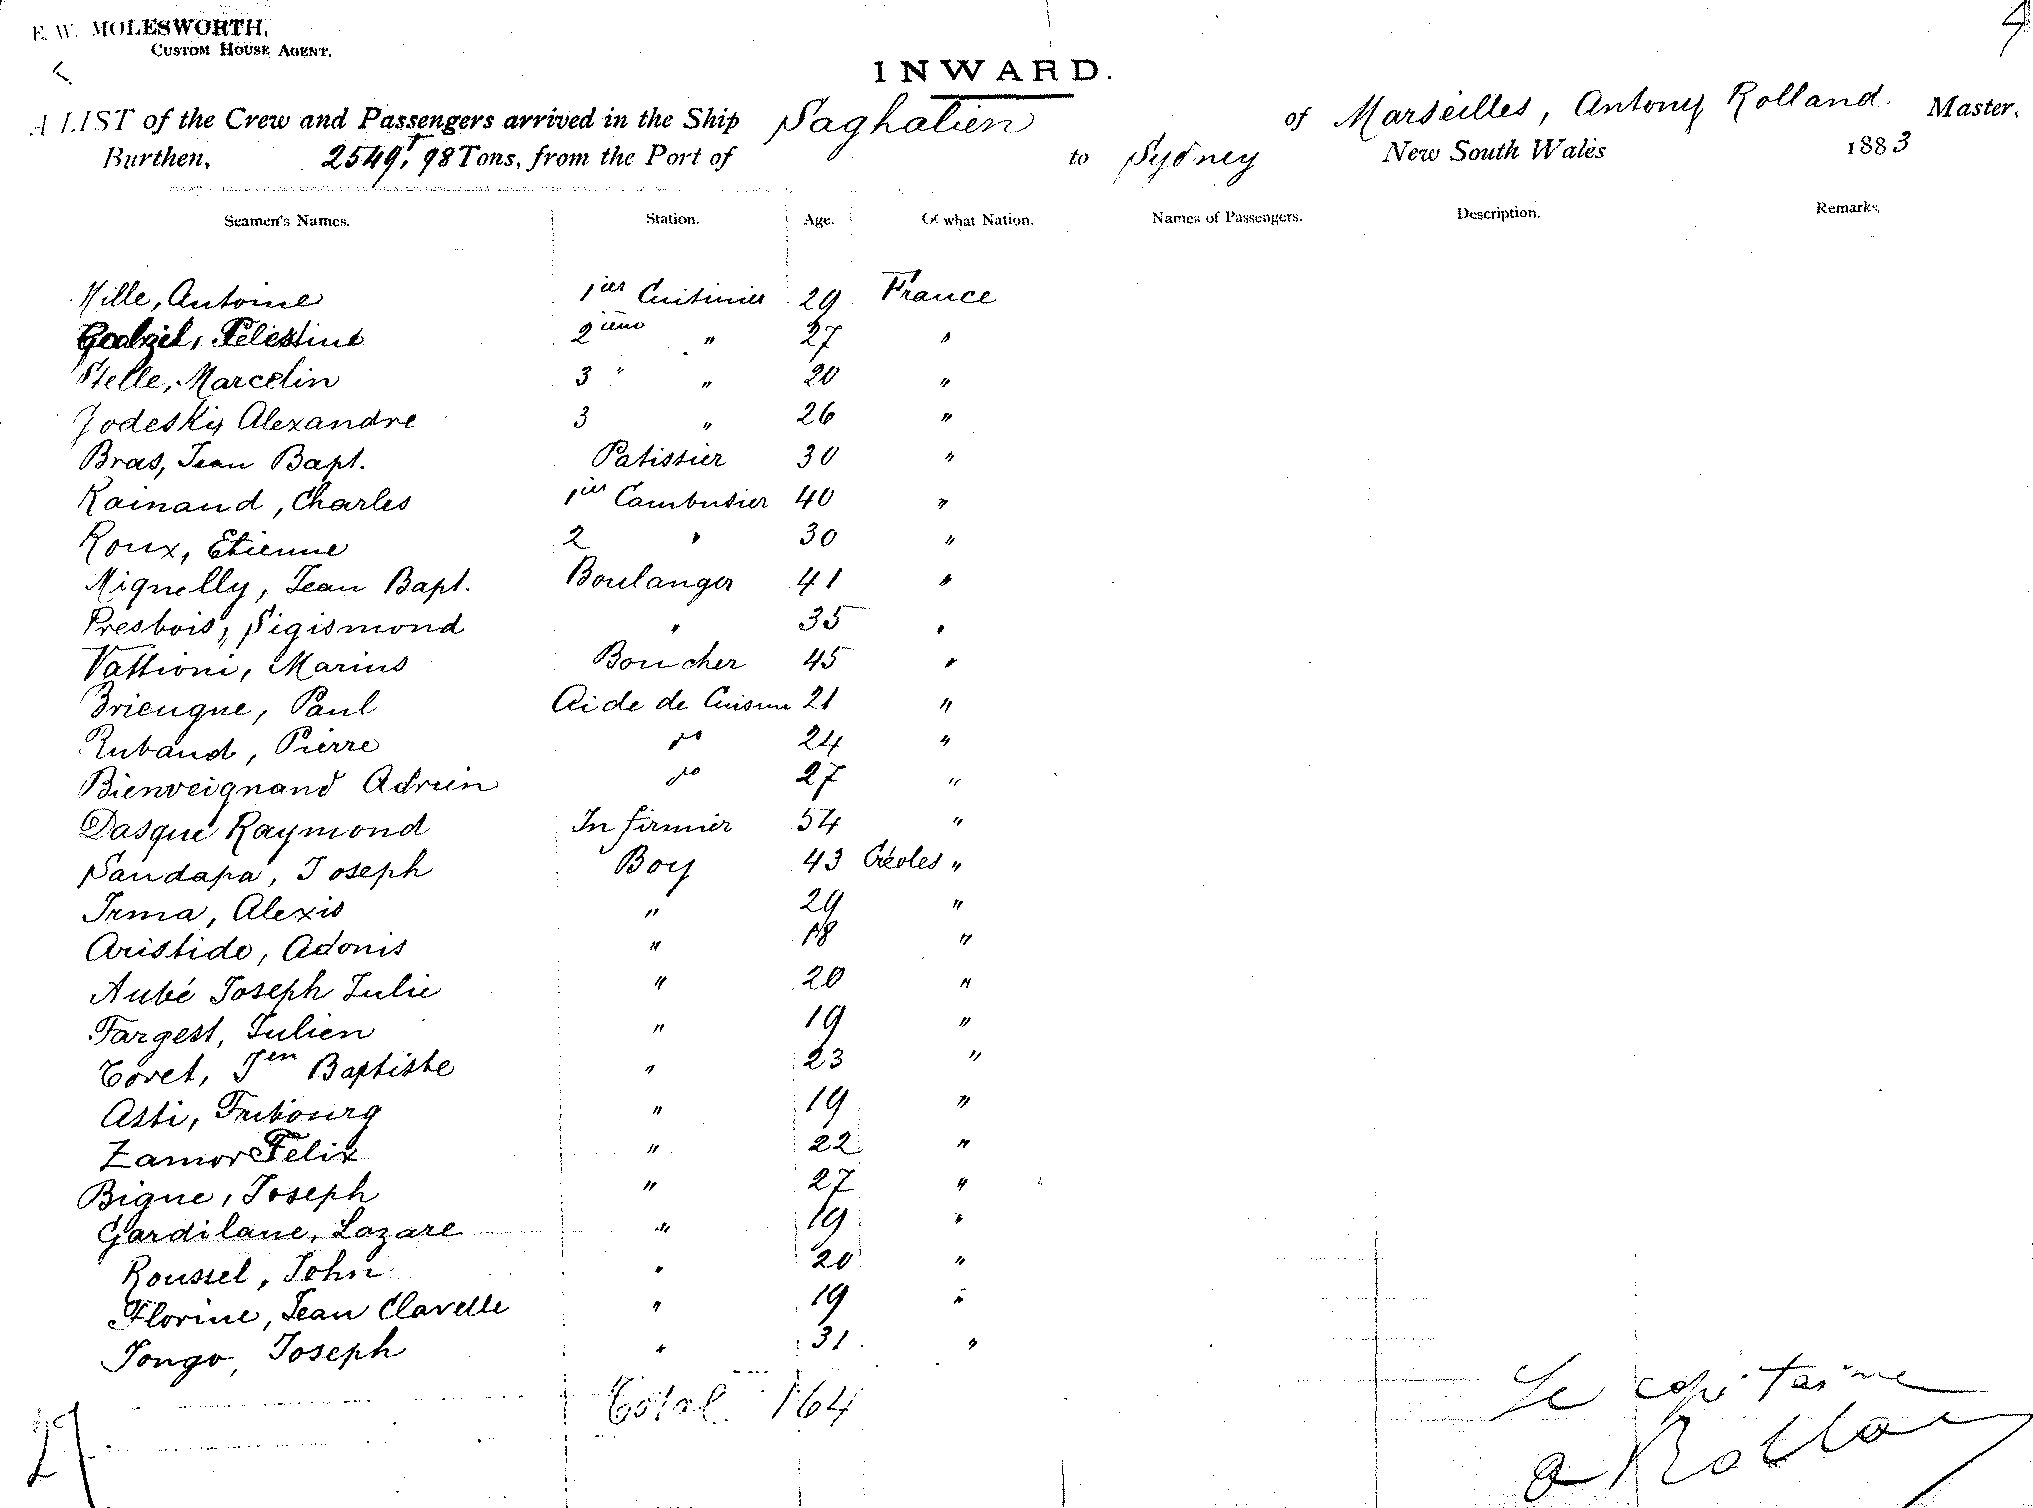 4
E. W. MOLESWORTH,
CUSTOM HOUSE AGENT.
INWARD.
A LIST of the Crew and Passengers arrived in the Ship Saghalien of Marseilles, Antony Rolland Master,
Burthen, 2549T,98 Tons, from the Port of to Sydney New South Wales 1883
Seamen's Names. Station. Age. Of what Nation. Names of Passengers. Description. Remarks.
Mille, Antoine 1ier Cuisinier 29 France
Célestine 2ième " 27 "
Stelle, Marcelin 3 " " 20 "
Alexandre 3 " 26 "
Bras, Jean Bapt. Patissier 30 "
Rainaud, Charles 1ier Cambusier 40 "
Roux, Etienne 2 " 30 "
Mignelly, Jean Bapt. Boulanger 41 "
Presbois, Sigismond " 35 "
Vattioni, Marius Boucher 45 "
Brieugne, Paul Aide de Cuisine 21 "
Rubaud, Pierre do 24 "
Bienveignand Adrien do 27 "
Dasque Raymond Infirmier 54 "
Sandapa, Joseph Boy 43 Créoles "
Irma, Alexis " 29 "
Aristide, Adonis " 18 "
Aubé Joseph Julie " 20 "
Fargest, Julien " 19 "
Coret, Jen Baptiste " 23 "
Asti, Fribourg " 19 "
Zamor Felix " 22 "
Bigne, Joseph " 27 "
Gardilane, Lazare " 19 "
Roussel, John " 20 "
Florine, Jean Clavelle " 19 "
Joseph " 31 "
Total 164
27
Le capitaine
a Rolland